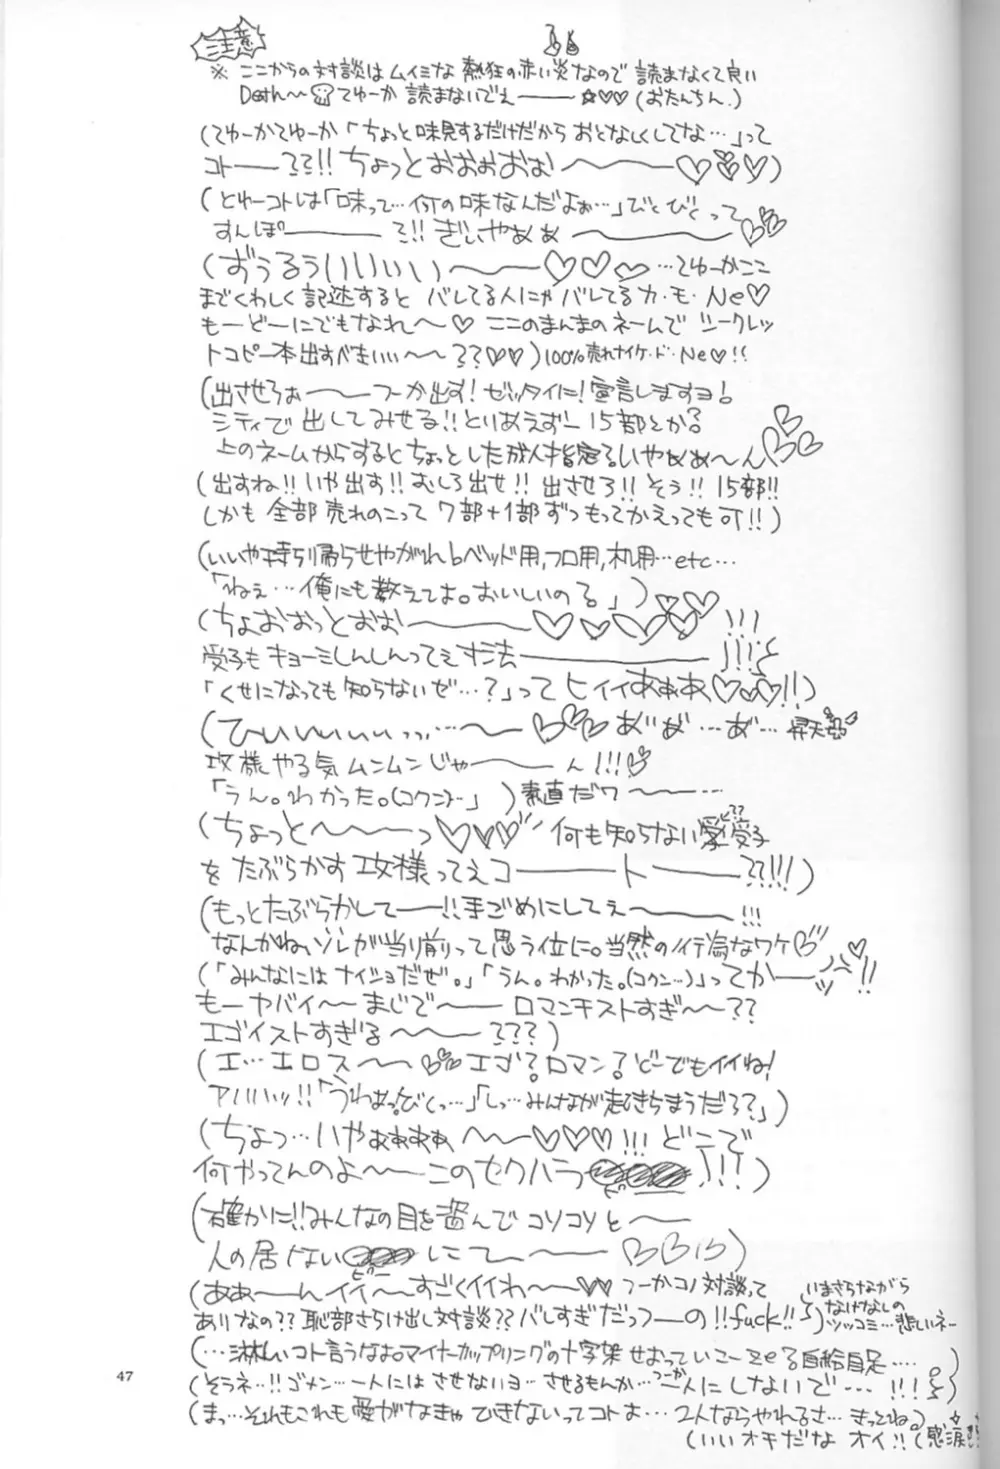 注意
※ ここからの対談はムイミな熱狂の赤い炎なので 読まなくて良い
Death～ てゆーか 読まないでぇ――― ☆♡♡ (おたんちん。)
(てゆーかてゆーか「ちょっと味見するだけだから おとなしくしてな…」って
コト――??!! ちょっとおおぉおぉ ～～～♡♡♡)
(とゆーコトは「味って…何の味なんだよぉ…」びくびくって
すんぽ――― ?!! ぎぃやぁぁ ～～～～♡♡
(ずぅるぅいいいぃい～～～♡♡♡…てゆーかここ
までくわしく記述すると バレてる人にゃ バレてるカ・モ・Ne♡
もーどーにでもなれ～♡ ここのまんまのネームで シークレッ
トコピー本出すべきいぃ～～??♡♡)100%売れナイケ・ド・Ne♡!!
(出させろぉ―― つーか出す! ゼッタイに! 宣言しますヨ!
シティで出してみせる!! とりあえずー 15部とか?
上のネームからするとちょっとした成人指定? いやぁぁ～ん♡♡♡
(出すね!! いや出す!! むしろ出せ!! 出させろ!! そう!! 15部!!
しかも 全部売れのこって 7部+1部ずつもってかえっても可!!)
(いいや持ち帰らせやがれ♭ベッド用,フロ用,机用…etc…
「ねぇ…俺にも教えてよ。おいしいの?」)♡♡♡
(ちょおおっとおお――――♡♡♡♡ !!!
受子もキョーミしんしんってぇ寸法――――――!!!
「くせになっても知らないぜ…?」って ヒィイあぁあぁ♡♡♡!!)
(ひぃいぃぃぃっっ…～～♡♡♡あ゛あ゛…あ゛… 昇天
攻様やる気ムンムンじゃ――ん!!!♡
「うん。わかった。(コクン…」)素直だワ～～…
(ちょっと～～～っ♡♡♡ 何も知らない愛受子
??
をたぶらかす攻様ってぇコ―――ト―――??!!!)
(もっとたぶらかして――!! 手ごめにしてぇ～～～ !!!
なんかね、ソレが当り前って思う位に。当然の行為なワケ♡
(「みんなにはナイショだぜ。」「うん。わかった。(コクン…)」ってか――ッ!!
もーヤバイ～～まじで～～ ロマンチストすぎ～～??
エゴイストすぎる～～～???)
(エ…エロス～～♡♡ エゴ? ロマン? どーでもイイね!
アハハッ!! 「うわぁっ。びくっ…」「しっ…みんなが起きちまうだろ?」)
(ちょっ…いやぁぁぁぁ～～♡♡♡!!! どこで
何やってんのよ～～このセクハラ !!!)
(確かに!! みんなの目を盗んで コソコソと～～
人の居ない にて～～～ ♡♡♡)
(ああ～～んイイ～～すごくイイわ～～♡♡ つーかコノ対談って
ありなの?? 恥部さらけ出し対談?? バレすぎだっつーの!!fuck!!)
いまさらながら
なけなしの
ツッコミ…悲しいネー
(…淋しいコト言うなよ。マイナーカップリングの十字架 せおっていこーze? 自給自足……)
(そうネ…!! ゴメン…一人にはさせないヨ…させるもんか…つーか一人にしないで…!!!)
(まっ…それもこれも愛がなきゃできないってコトよ…2人ならやれるさ…きってね。)
(いいオチだな オイ!!(感涙
47